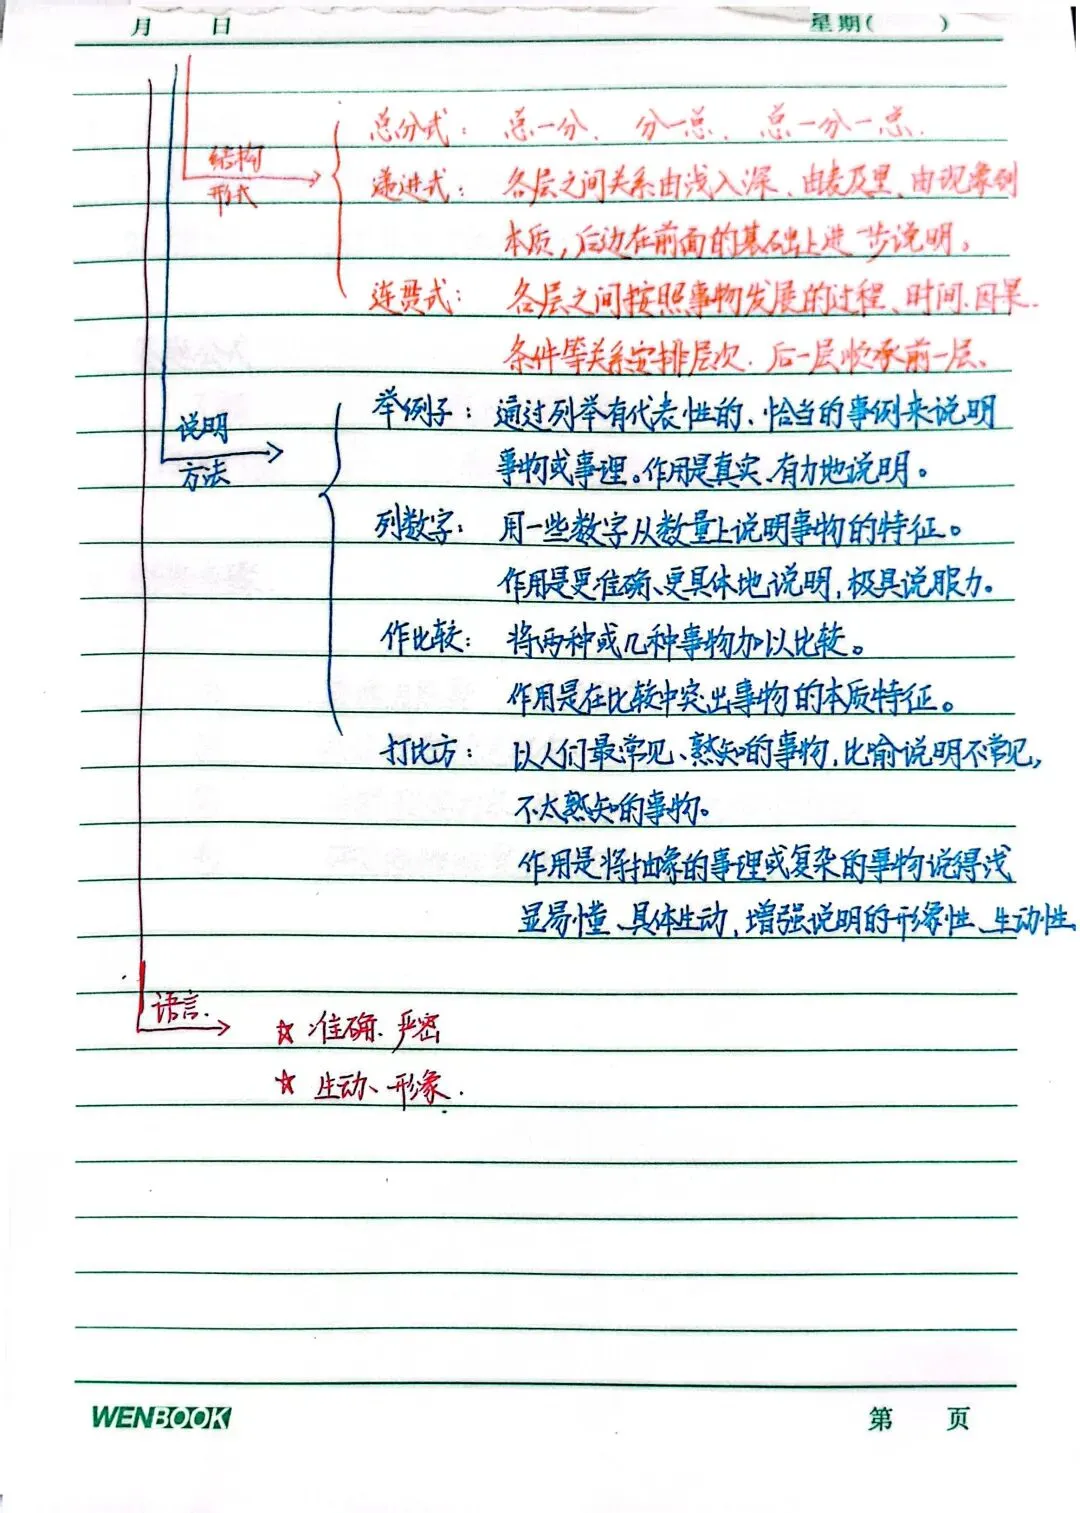 月 日 星期( )
总分式： 总一分、 分一总、 总一分一总.
结构
形式
递进式： 各层之间关系由浅入深、由表及里、由现象到
本质，后边在前面的基础上进一步说明。
连贯式： 各层之间按照事物发展的过程、时间、因果、
条件等关系安排层次、后一层顺承前一层、
说明
方法
举例子： 通过列举有代表性的、恰当的事例来说明
事物或事理。作用是真实、有力地说明。
列数字： 用一些数字从数量上说明事物的特征。
作用是更准确、更具体地说明，极具说服力。
作比较： 将两种或几种事物加以比较。
作用是在比较中突出事物的本质特征。
打比方： 以人们最常见、熟知的事物，比喻说明不常见，
不太熟知的事物。
作用是将抽象的事理或复杂的事物说得浅
显易懂、具体生动，增强说明的形象性、生动性.
语言.
☆ 准确、严密
☆ 生动、形象.
WENBOOK 第 页